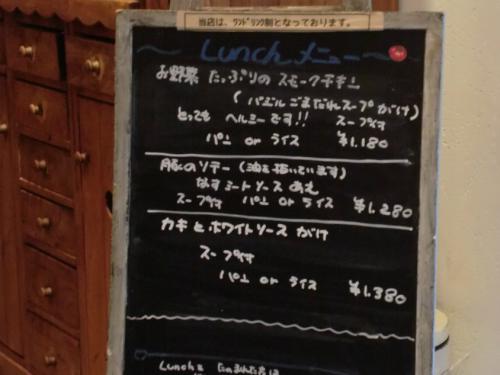 当店は、ワンドリンク制となっております。
Lunch メニュー
お野菜 たっぷりの スモークチキン
(バジルごまだれスープがけ)
とっても ヘルシーです!! スープ付
パン or ライス ¥1,180
豚のソテー(油を描いています)
なすミートソース あえ
スープ付 パン or ライス ¥1,280
カキとホワイトソース がけ
スープ付
パン or ライス ¥1,380
Lunchを